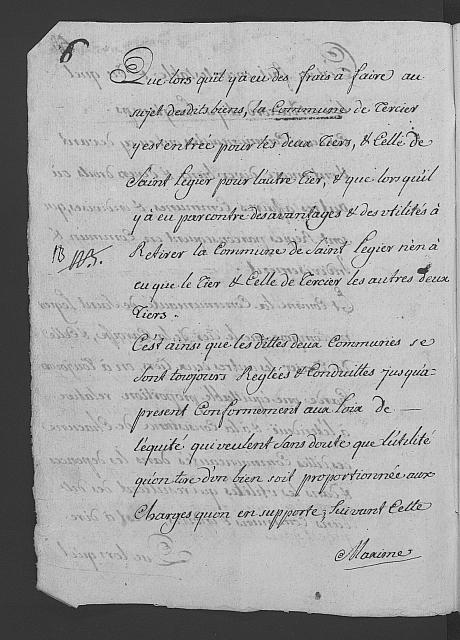 6
Que lors qu'il y a eu des frais à faire au
sujet desdits biens, la Commune de Tercier
y est entrée pour les deux Tiers, & Celle de
Saint Legier pour l'autre Tier, & que lorsqu'il
y à eu par contre des avantages & des utilités à
Retirer la Commune de Saint Legier n'en à
eu que le Tier & Celle de Tercier les autres deux
Tiers.
C'est ainsi que les dittes deux Communes se
sont toujours Reglées & Conduittes jusqu'à-
present Conformement aux Loix de —
l'équité qui veulent sans doute que l'utilité
qu'on tire d'un bien soit proportionnée aux
Charges qu'on en supporte; Suivant Cette
Maxime